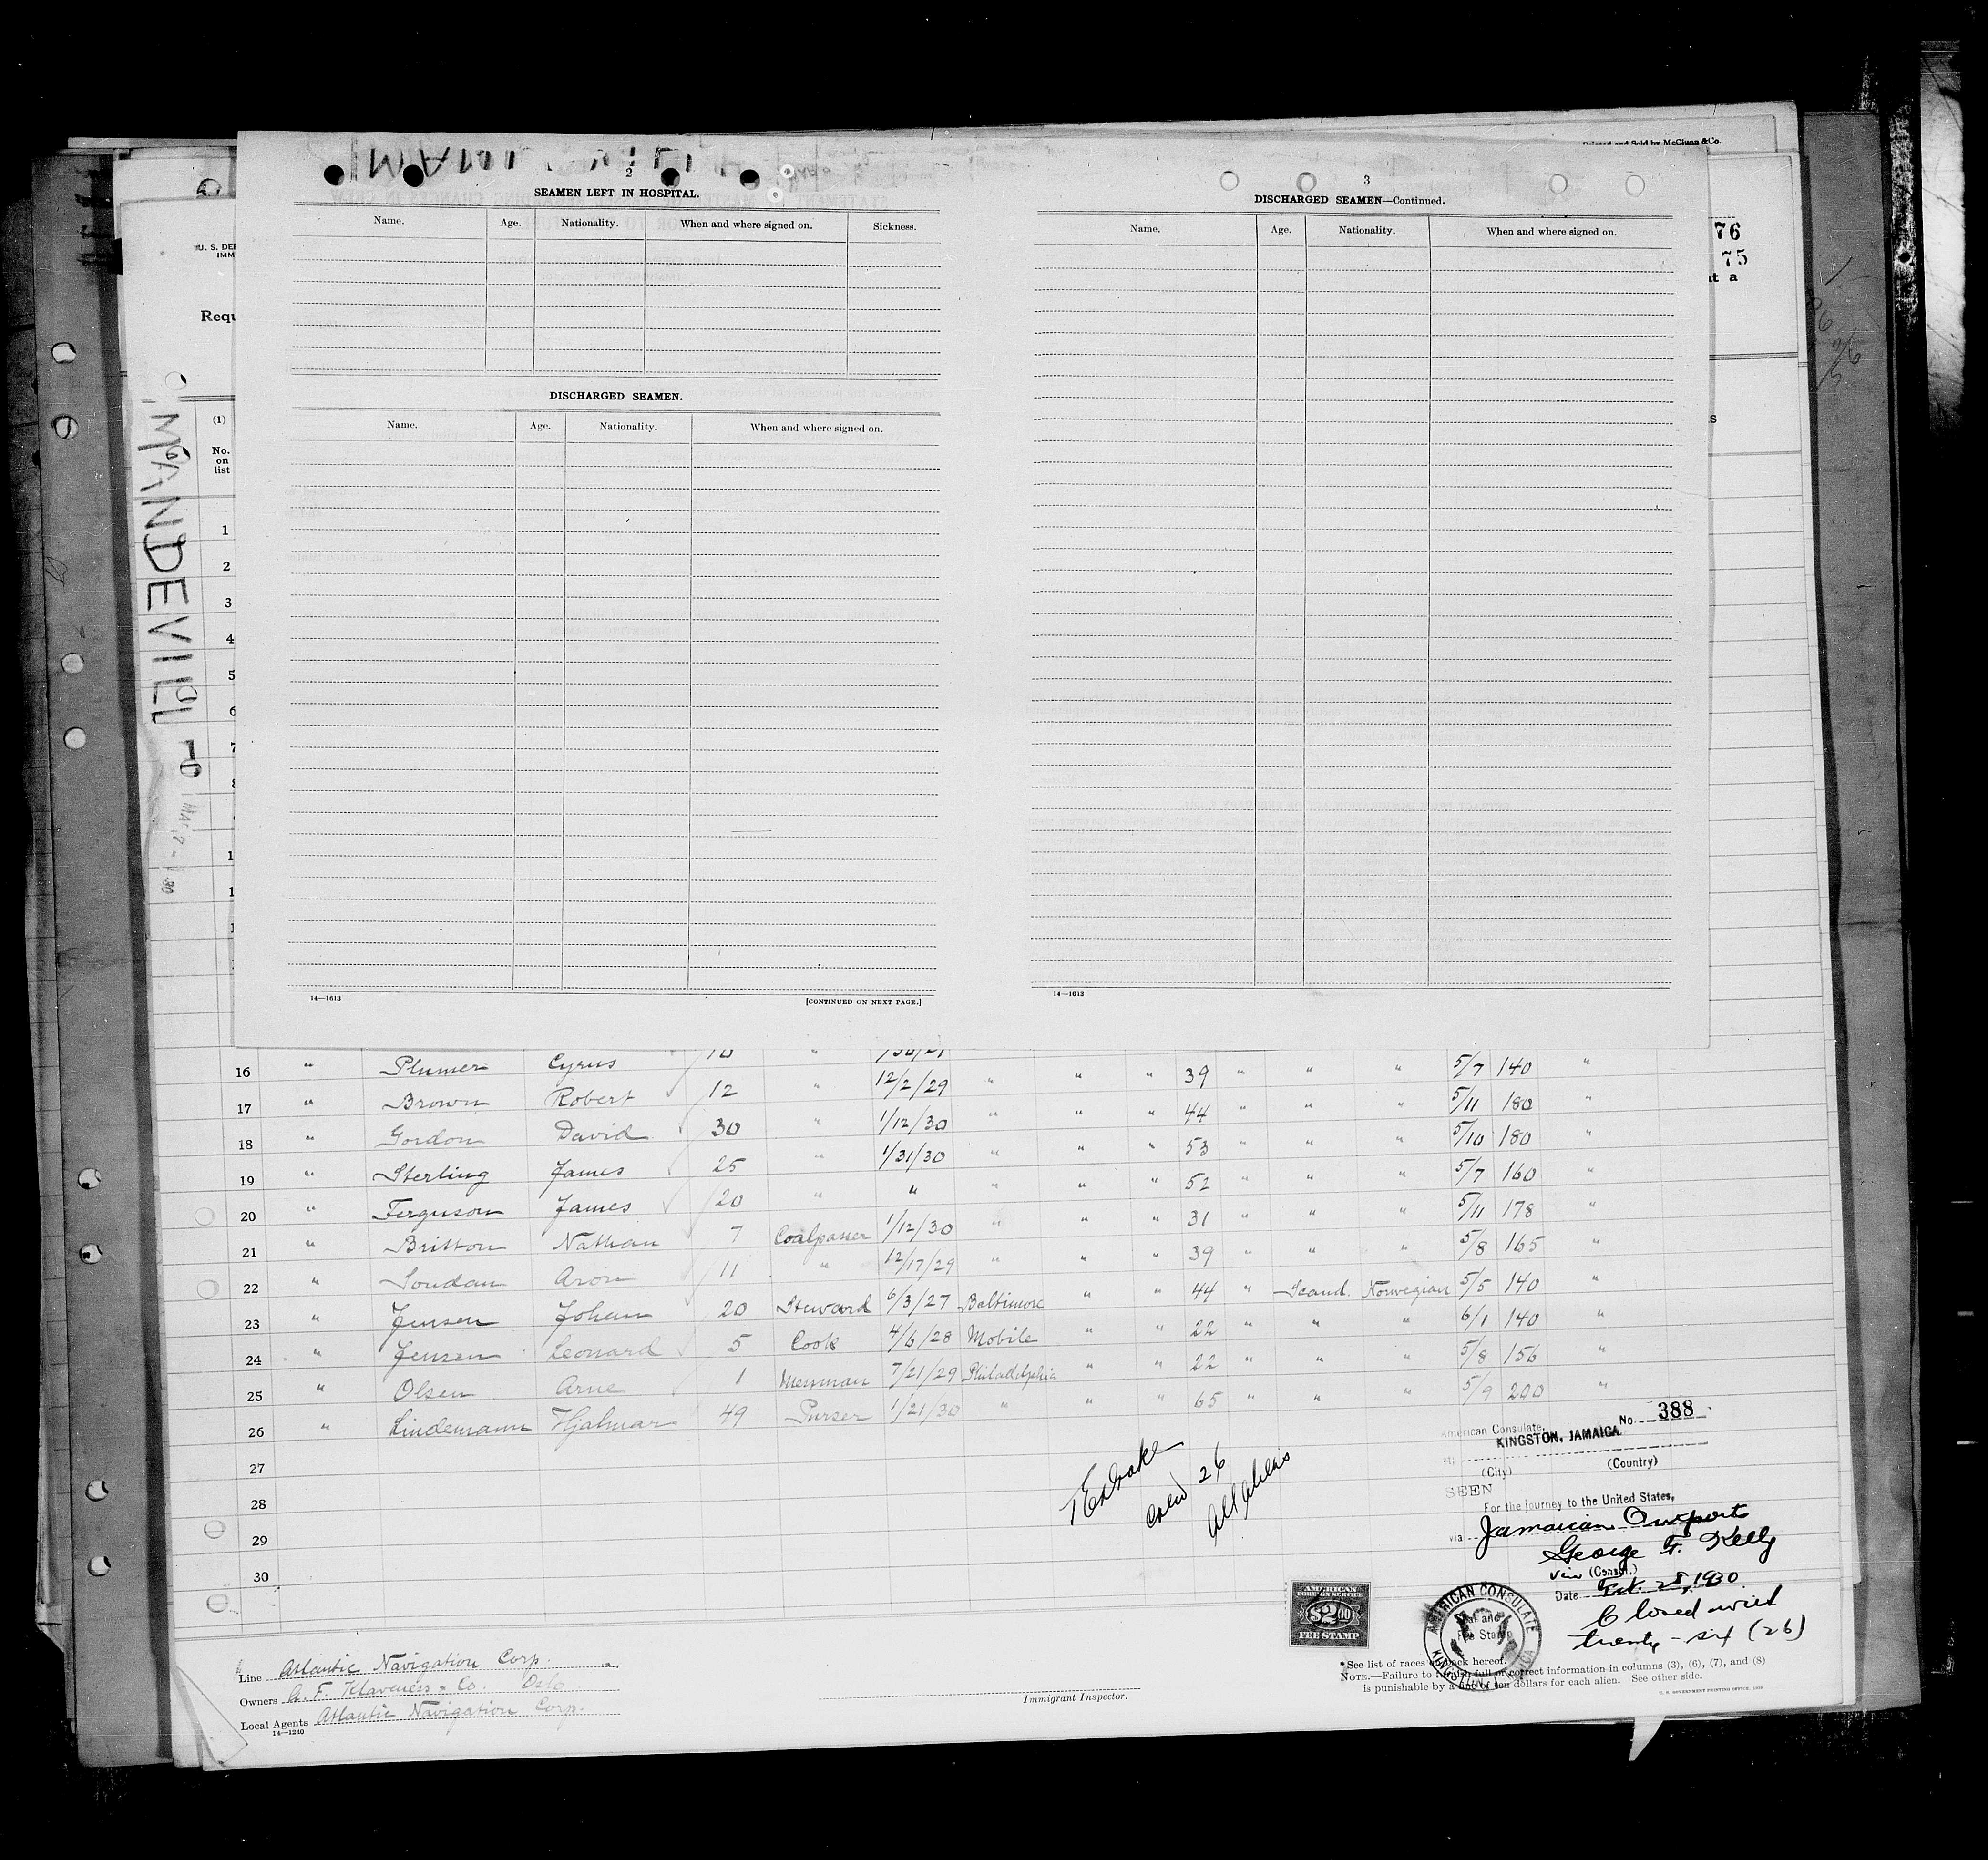 Printed and Sold by McClunn & Co.
2
SEAMEN LEFT IN HOSPITAL.
Name. Age. Nationality. When and where signed on. Sickness.
DISCHARGED SEAMEN.
Name. Age. Nationality. When and where signed on.
14—1613 [CONTINUED ON NEXT PAGE.]
3
DISCHARGED SEAMEN—Continued.
Name. Age. Nationality. When and where signed on.
14—1613
U. S. DE
IMM
Requ
76
75
at a
s
(1)
No. on list
MANDEVILLE
1
2
3
4
5
6
7
8
1
1
1
16 " Plumer Cyrus 10 " " " " 39 " " " 5/7 140 "
17 " Brown Robert 12 " 12/2/29 " " " 44 " " " 5/11 180 "
18 " Gordon David 30 " 1/12/30 " " " 53 " " " 5/10 180 "
19 " Sterling James 25 " 1/31/30 " " " 52 " " " 5/7 160 "
20 " Ferguson James 20 " " " " " 31 " " " 5/11 178 "
21 " Britton Nathan 7 Coalpasser 1/12/30 " " " 39 " " " 5/8 165 "
22 " Aron 11 " 12/17/29 " " " 44 " Scand. Norwegian 5/5 140 "
23 " Jensen Johan 20 Steward 6/3/27 Baltimore " " 22 " " " 6/1 140 "
24 " Jensen Leonard 5 Cook 4/6/28 Mobile " " 22 " " " 5/8 156 "
25 " Olsen Arne 1 Messman 7/21/29 Philadelphia " " 65 " " " 5/9 200 "
26 " Lindemann Hjalmar 49 Purser 1/21/30 "
27
28
29
30
26
All aliens
American Consulate, No. 388
KINGSTON, JAMAICA
(City) (Country)
SEEN
For the journey to the United States,
via Jamaican Outports
George F. Kelly
Vice (Consul.)
Date Feb. 28, 1930
Closed with
twenty-six (26)
AMERICAN
FOREIGN SERVICE
$2.00
FEE STAMP
AMERICAN CONSULATE
KINGSTON, JAMAICA
Seal and
Fee Stamp
Line Atlantic Navigation Corp.
Owners A. F. Klaveness & Co. Oslo
Local Agents Atlantic Navigation Corp.
14—1240
Immigrant Inspector.
* See list of races on back hereof.
NOTE.—Failure to furnish full or correct information in columns (3), (6), (7), and (8)
is punishable by a fine of ten dollars for each alien. See other side.